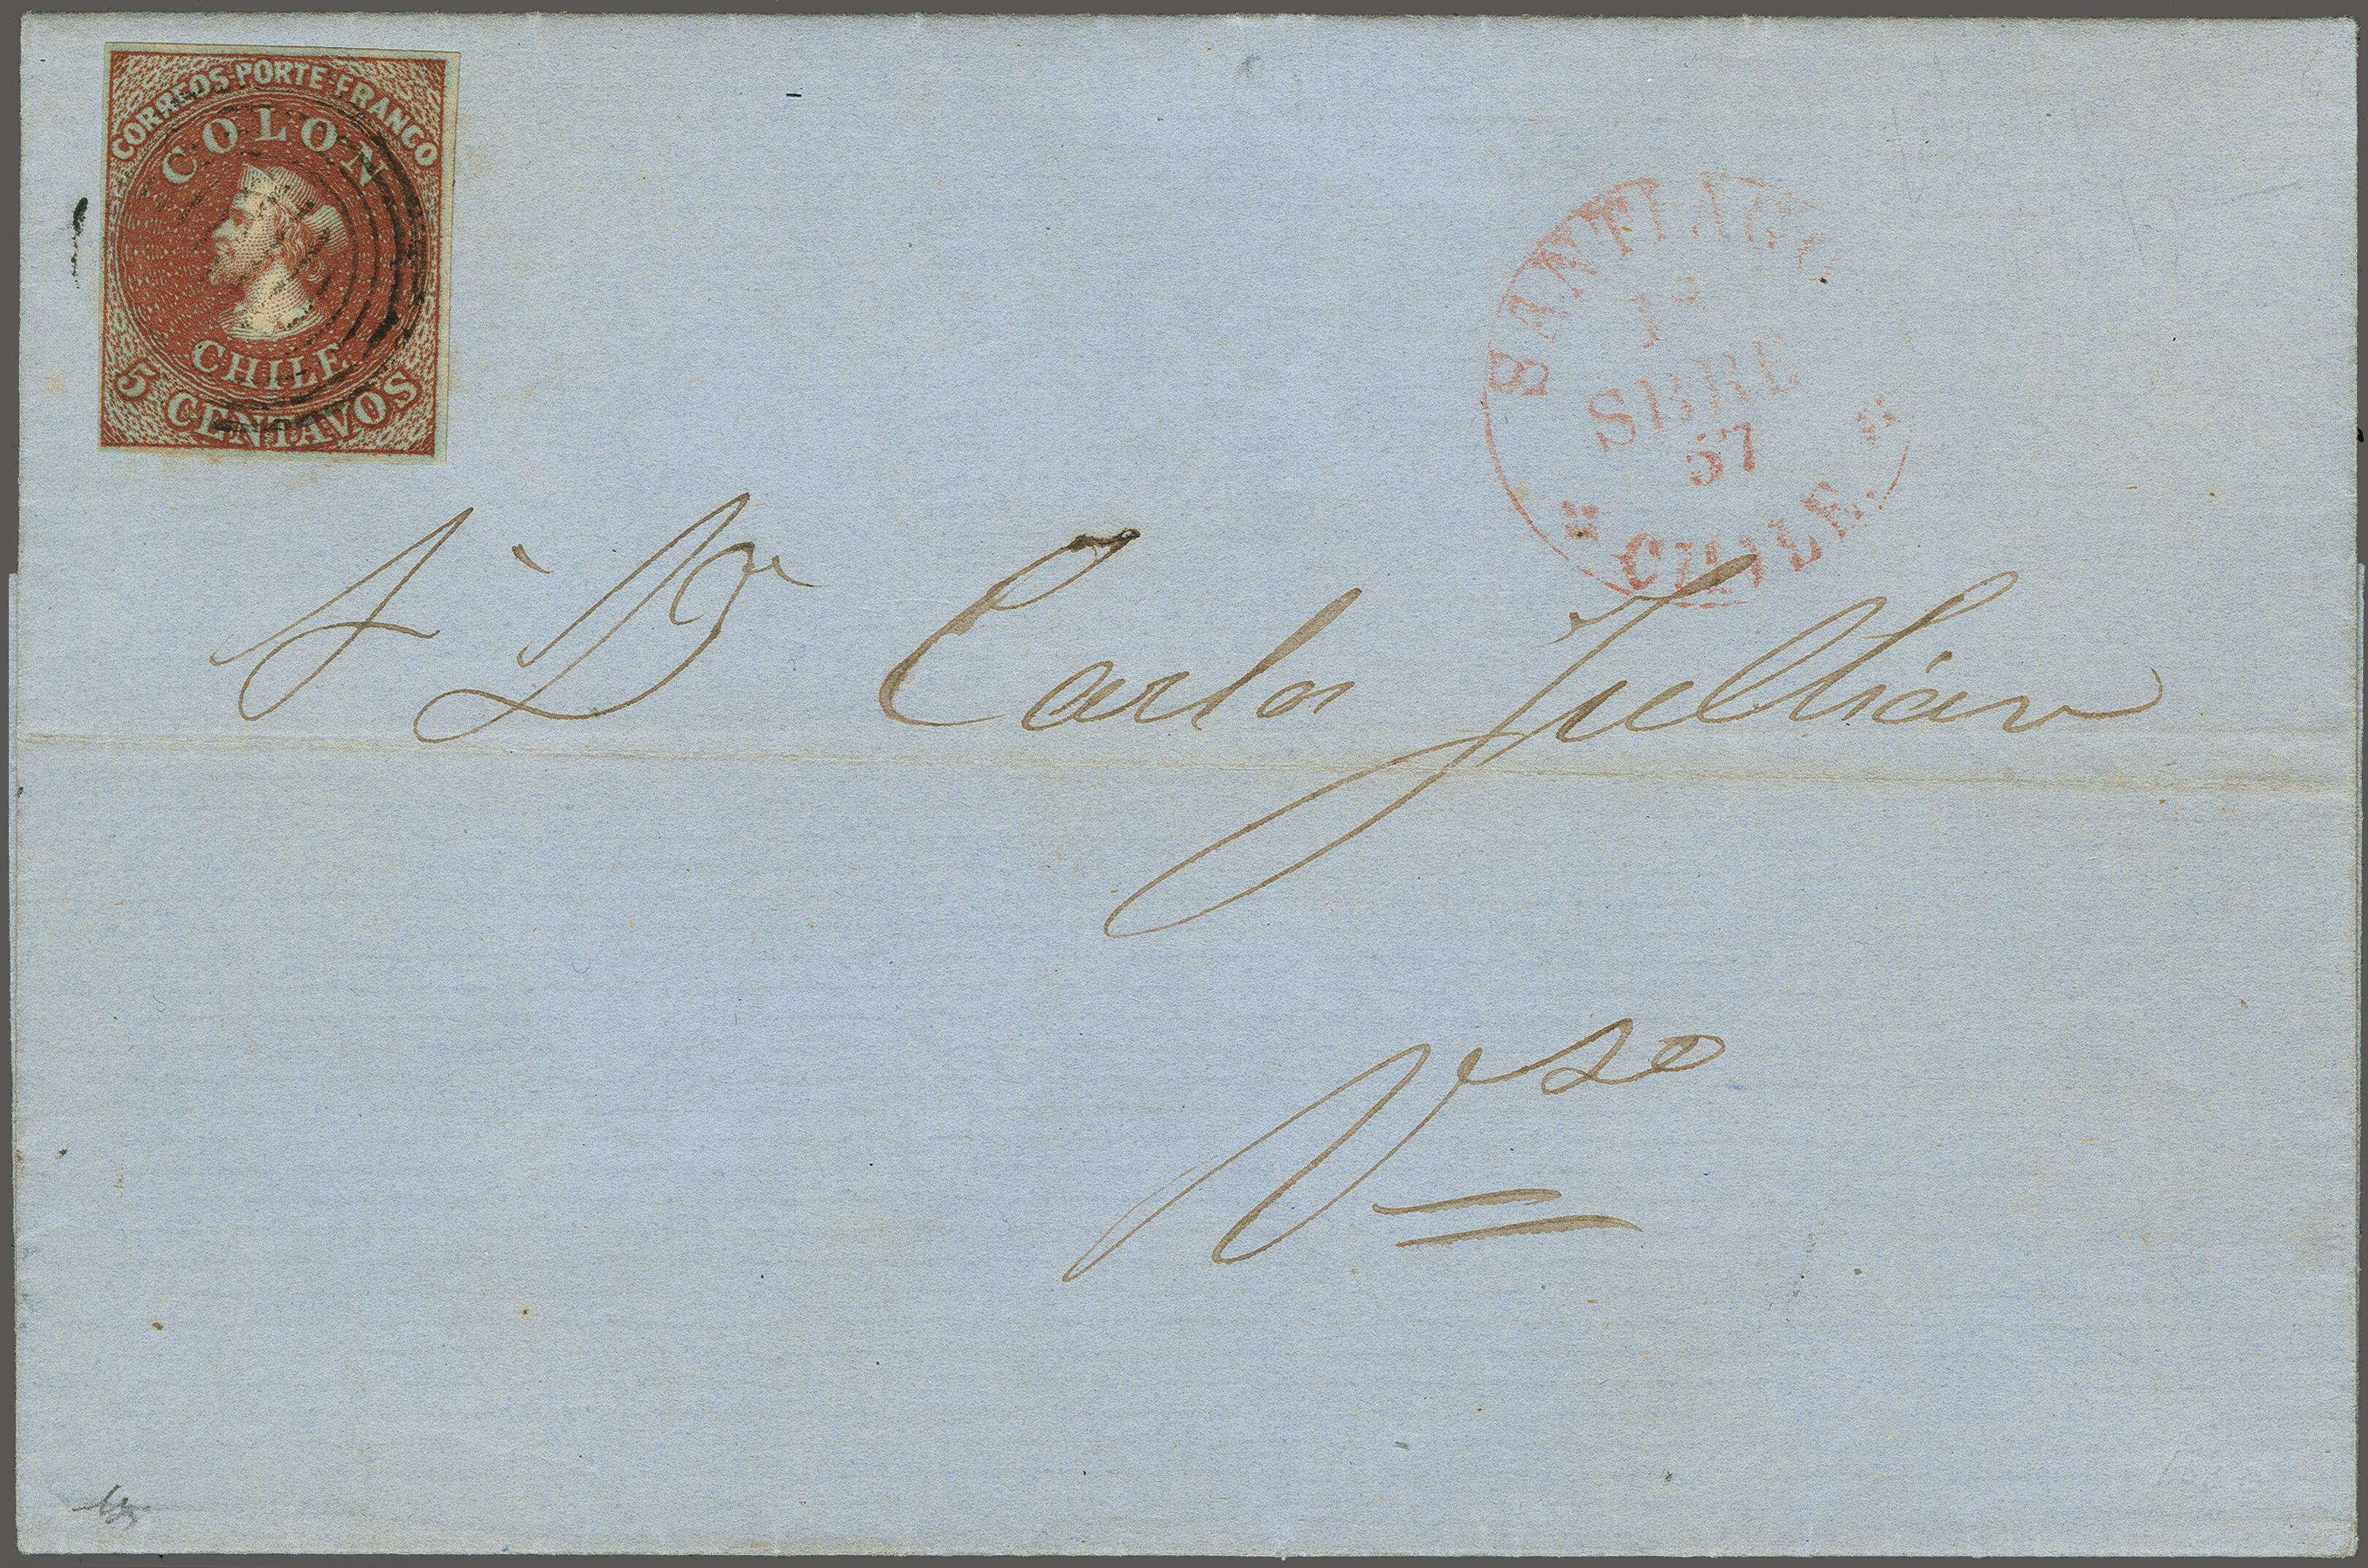 CORREOS·PORTE·FRANCO
COLON
CHILE
5 CENTAVOS
SANTIAGO
SBRE
57
CHILE.
A Dn Carlos Jullian
Vso